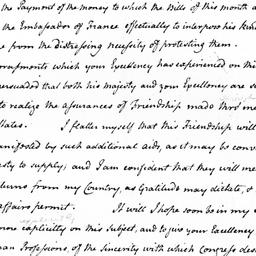 the Payment of the money to which the Bills of this month a
the Embassador of France effectually to interpose his kind
me from the distressing necessity of protesting them.
arrassments which your Excellency has experienced on this
persuaded that both his majesty and your Excellency are s
to realize the assurances of Friendship made thro' me
States. I flatter myself that this Friendship will
manifested by such additional aids, as it may be conv
esty to supply; and I am confident that they will me
returns from my Country, as Gratitude may dictate, &
affairs permit. It will I hope soon be in my
more explicitly on this Subject, and to give your Excellency
than Professions, of the Sincerity with which Congress desi